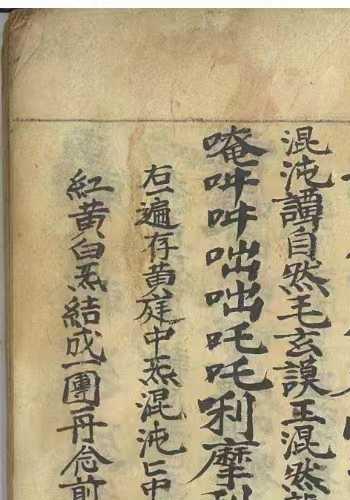 混沌譚自然毛玄謨王混然
唵吽吽咄咄吒吒利摩
右一遍存黄庭中炁混沌中
紅黄白炁結成一團再念前